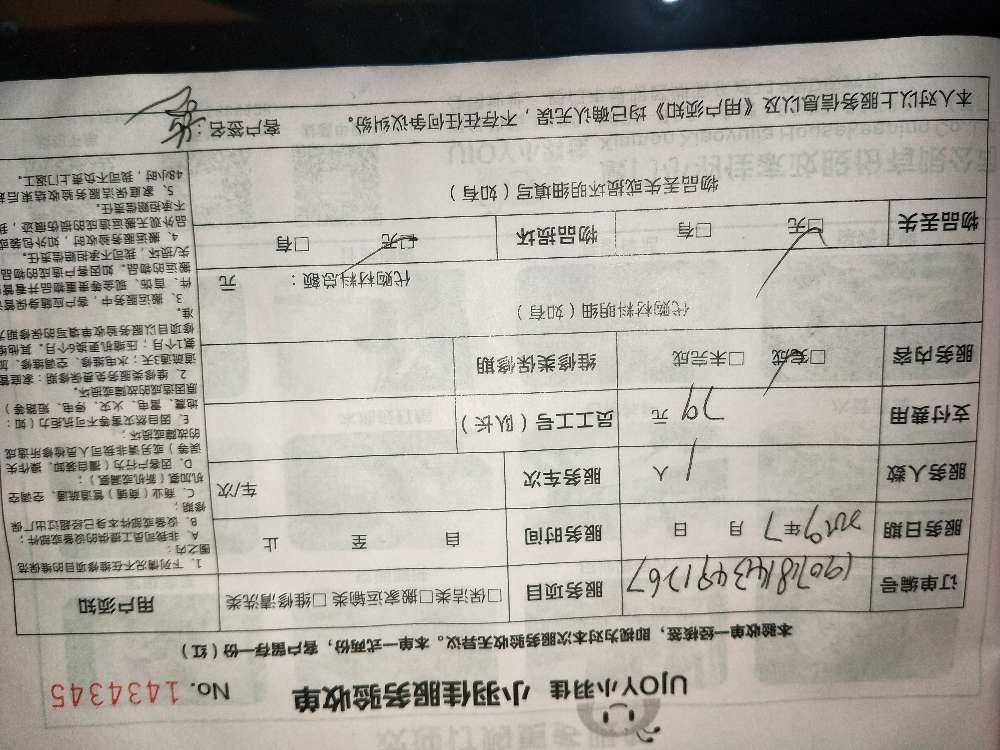 UJOY小羽佳 小羽佳服务验收单 No. 1434345
本验收单一经接签，即视为对本次服务验收无异议。本单一式两份，客户留存一份（红）
订单编号 服务项目 □保洁类□搬家运输类 □维修清洗类
服务日期 2019年7月 日 服务时间 自 至 止
服务人数 1人 服务车次 车/次
支付费用 79元 员工工号（队长）
服务内容 □完成 □未完成 维修类保修期
代购材料明细（如有）
代购材料总额： 元
物品丢失 □无 □有 物品损坏 □无 □有
物品丢失或损坏明细填写（如有）
本人对以上服务信息以及《用户须知》均已确认无误，不存在任何争议纠纷。 客户签名：
用户须知
1、下列情况不在维修项目的维保范
围之内：
A、非我司员工提供的设备或部件；
B、设备或部件本身已经超过出厂保
修期；
C、商业（商铺）管道疏通、空调空
机加氟（新机或漏氟）；
D、因客户行为（擅自装卸、操作失
误等）或另请非我司人员检修所造成
的故障或损坏；
E、因自然灾害等不可抗拒力（如：
地震、雷电、火灾、停电、短路等）
原因造成的故障或损坏。
2、维修类服务免费保修期：家庭管
道疏通3天；水电维修、空调维修、加
氟1个月；压缩机更换6个月。其他维
修项目以服务验收单填写的保修期为
准。
3、搬运服务中，客户应随身保管证
件、首饰、现金等贵重物品并看管
搬运的物品。如因客户造成的物品
失/损坏，我司不承担赔偿责任。
4、搬运服务验收时，如外包装或
品外观无搬运造成的损伤痕迹，我
不承担赔偿责任。
5、家庭保洁服务验收结束后超
48小时，我司不负责上门返工。